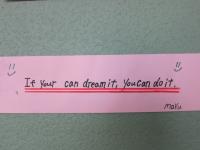 If your can dream it, You can do it.
maku